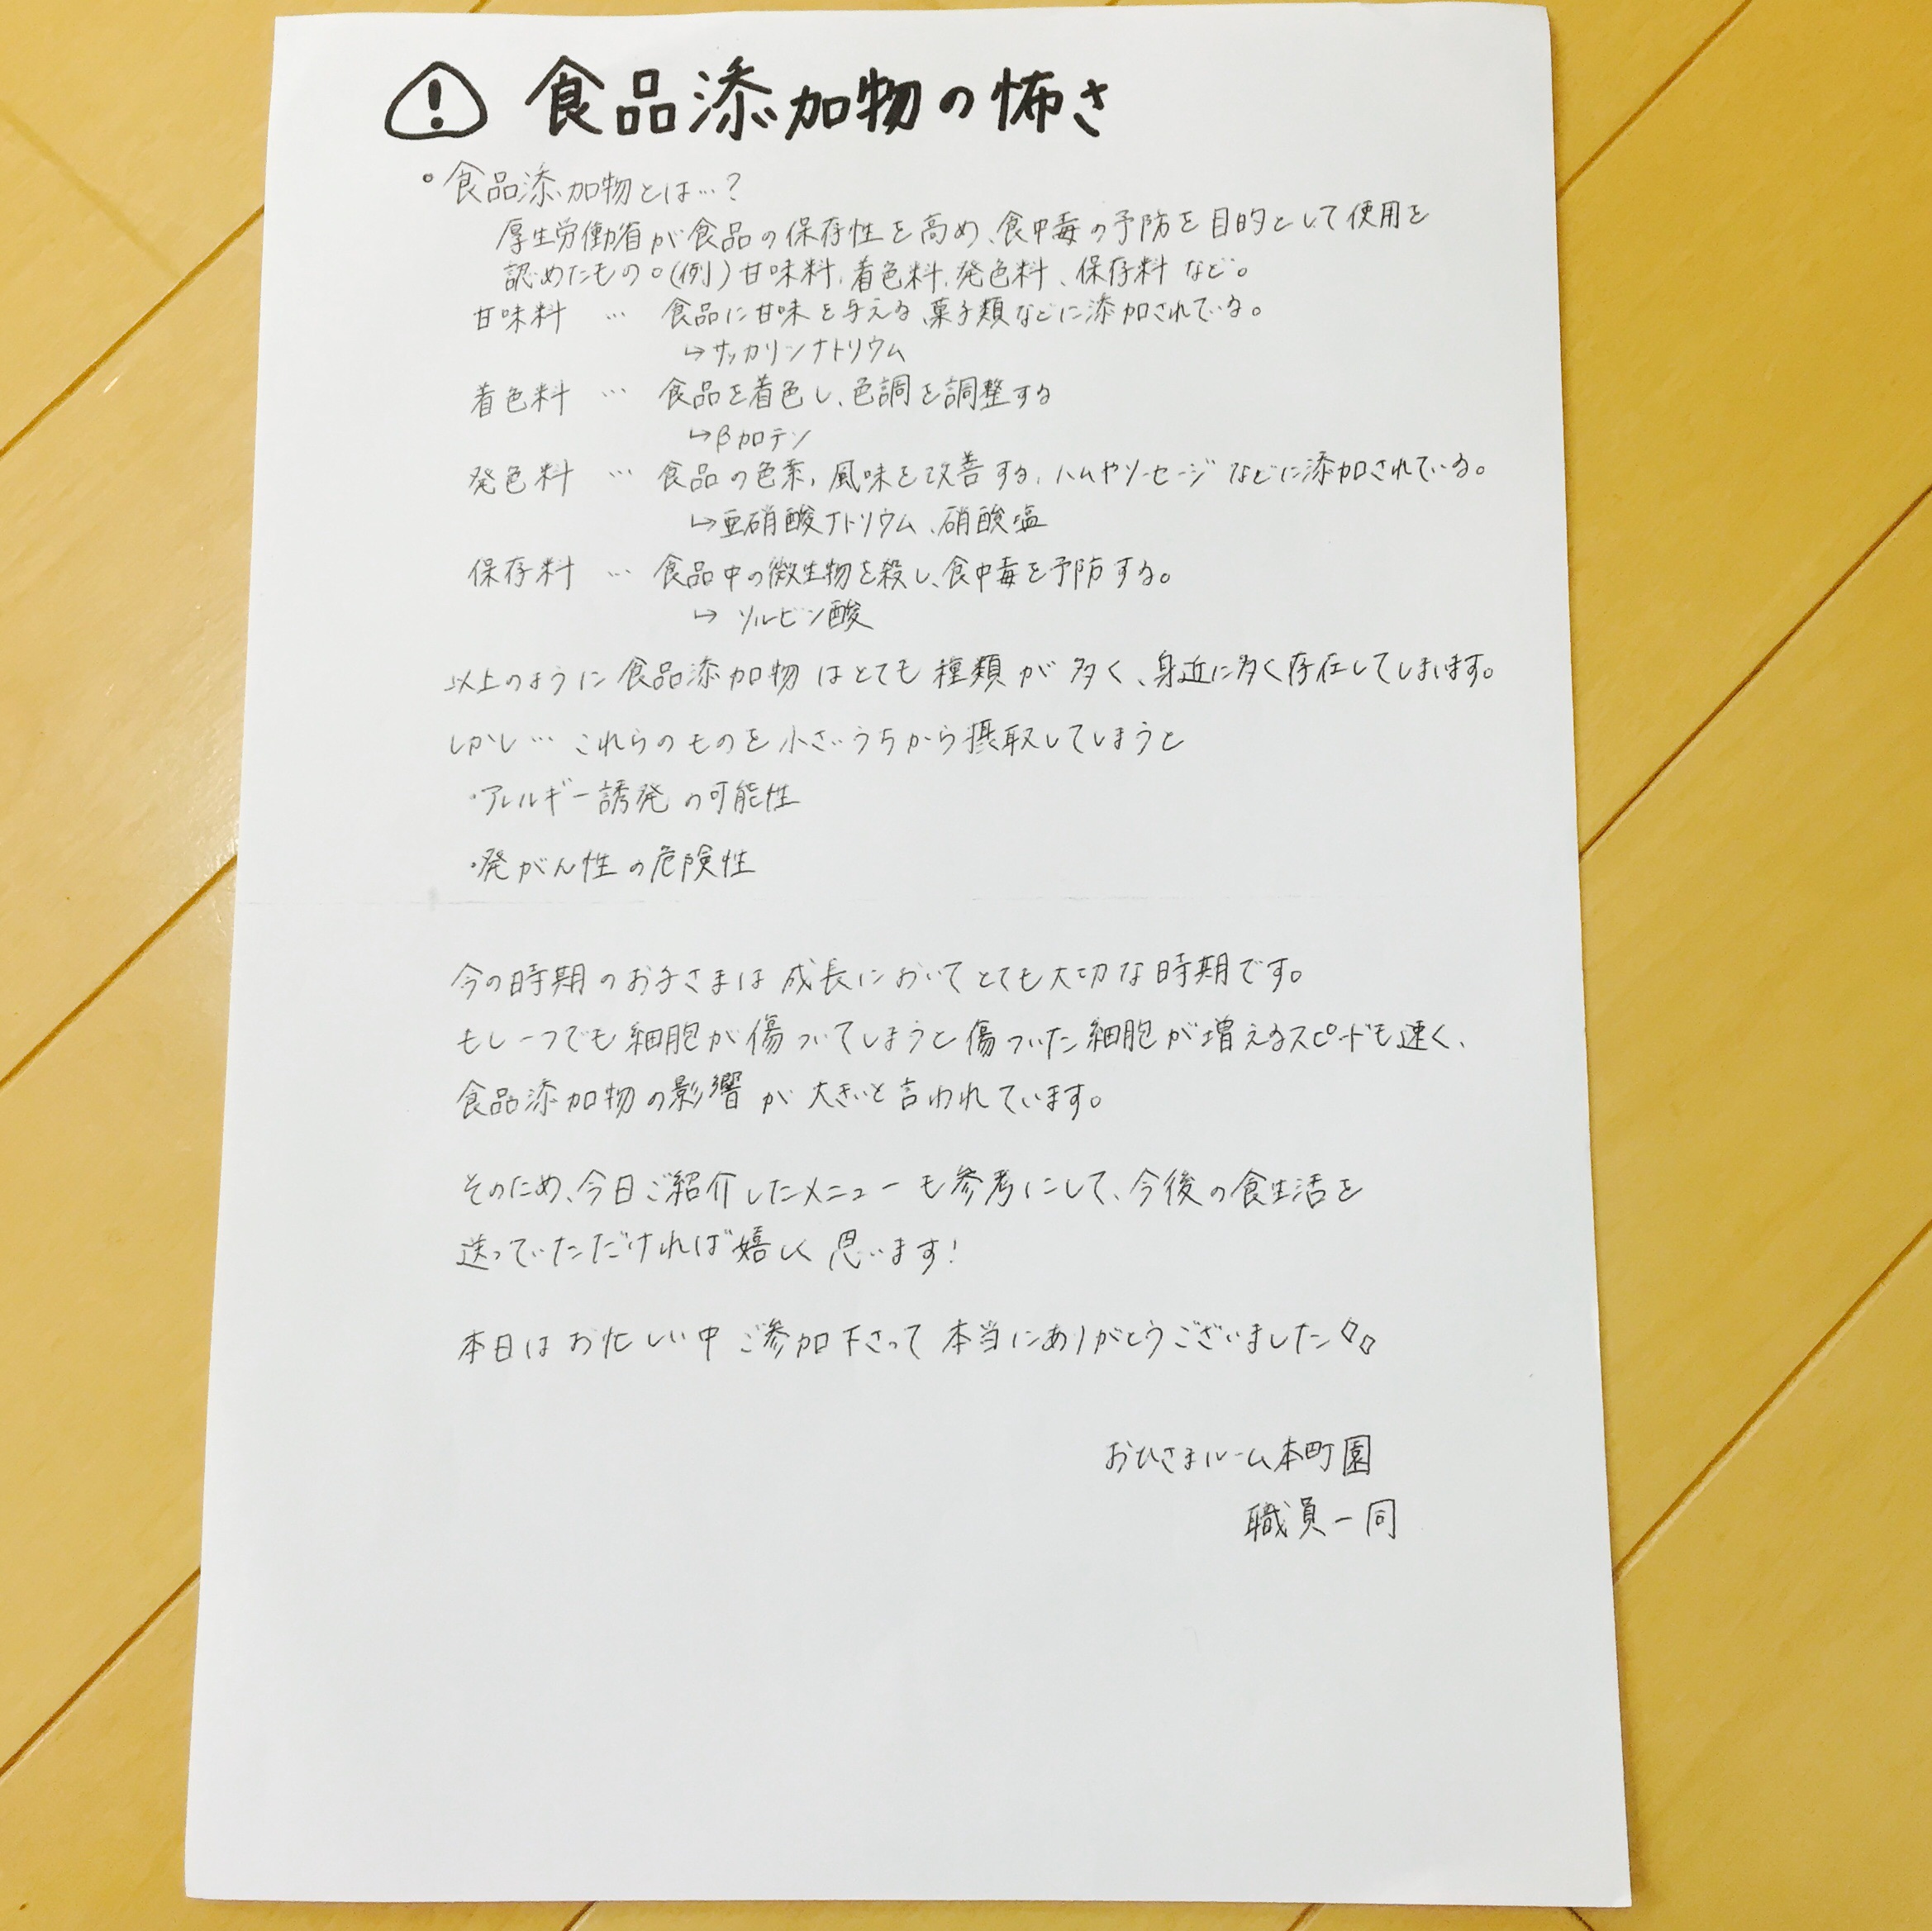 食品添加物の怖さ
・食品添加物とは…?
厚生労働省が食品の保存性を高め、食中毒の予防を目的として使用を
認めたもの。(例)甘味料、着色料、発色料、保存料など。
甘味料 … 食品に甘味を与える、菓子類などに添加されている。
↳サッカリンナトリウム
着色料 … 食品を着色し、色調を調整する
↳βカロテン
発色料 … 食品の色素、風味を改善する、ハムやソーセージなどに添加されている。
↳亜硝酸ナトリウム、硝酸塩
保存料 … 食品中の微生物を殺し、食中毒を予防する。
↳ソルビン酸
以上のように食品添加物はとても種類が多く、身近に多く存在してしまいます。
しかし…これらのものを小さいうちから摂取してしまうと
・アレルギー誘発の可能性
・発がん性の危険性
今の時期のお子さまは成長においてとても大切な時期です。
もし一つでも細胞が傷ついてしまうと傷ついた細胞が増えるスピードも速く、
食品添加物の影響が大きいと言われています。
そのため、今日ご紹介したメニューも参考にして、今後の食生活を
送っていただければ嬉しく思います!
本日はお忙しい中ご参加下さって本当にありがとうございました
おひさまルーム本町園
職員一同